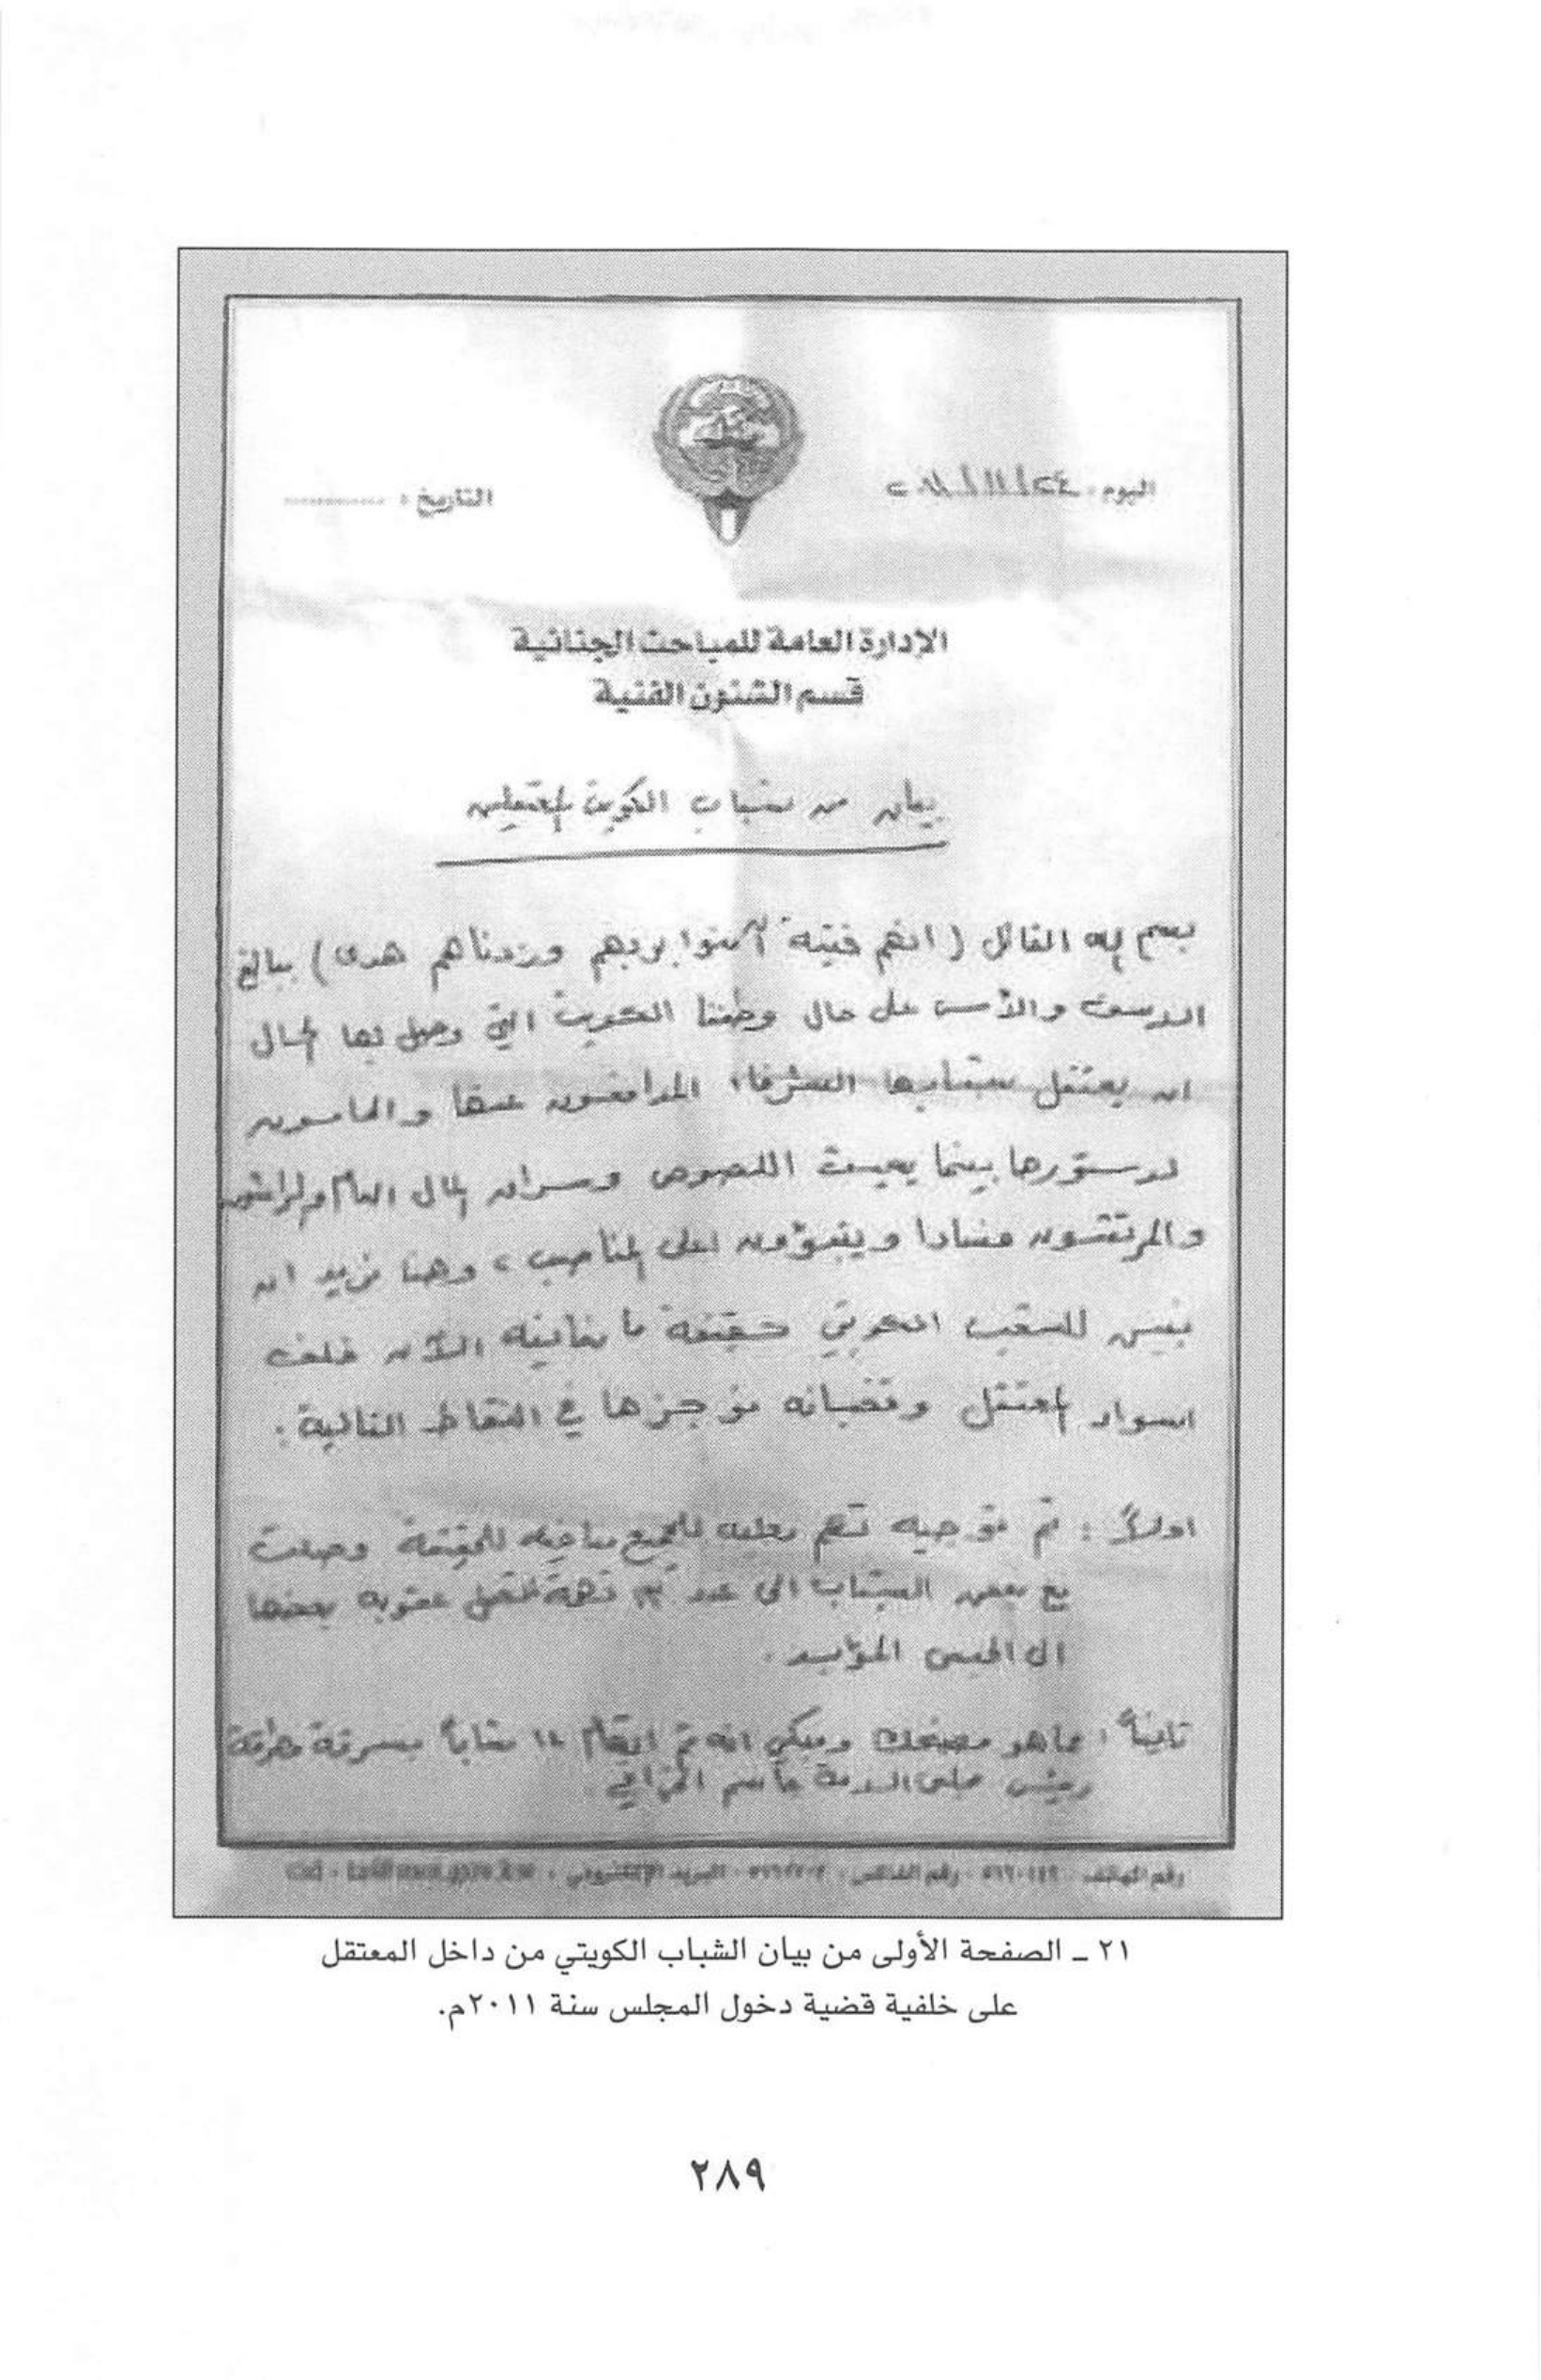 اليوم: ٢٤/١١/٢٠١١
التاريخ:
الإدارة العامة للمباحث الجنائية
قسم الشئون الفنية
بيان من شباب الكويت المعتقلين
بسم الله القائل (انهم فتية آمنوا بربهم وزدناهم هدى) ببالغ
الاسف والأسى على حال وطننا الكويت التي وصل بها الحال
ان يعتقل شبابها الشرفاء المدافعون عنها والحامون
لدستورها بينما يعيث اللصوص وسراق المال العام والراشون
والمرتشون فسادا ويتبوؤون اعلى المناصب، وهنا نريد ان
نبين للشعب الكويتي حقيقة ما نعانيه الآن خلف
اسوار المعتقل وقضبانه نوجزها في النقاط التالية:
اولاً: تم توجيه تهم للجميع للحقيقة وصلت
مع بعض الشباب الى عدد تهمة تصل عقوبة بعضها
الى الحبس المؤبد.
ثانياً: ماهو مضحك ومبكي انه تم اتهام شاباً بسرقة مطرقة
رئيس مجلس الامة جاسم الخرافي.
رقم الهاتف: رقم الفاكس: البريد الإلكتروني:
٢١ ـ الصفحة الأولى من بيان الشباب الكويتي من داخل المعتقل
على خلفية قضية دخول المجلس سنة ٢٠١١م.
٢٨٩